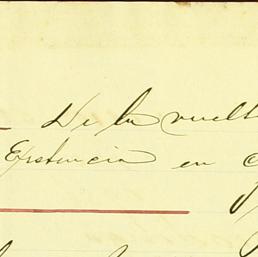 De la vuelt
Existencia en